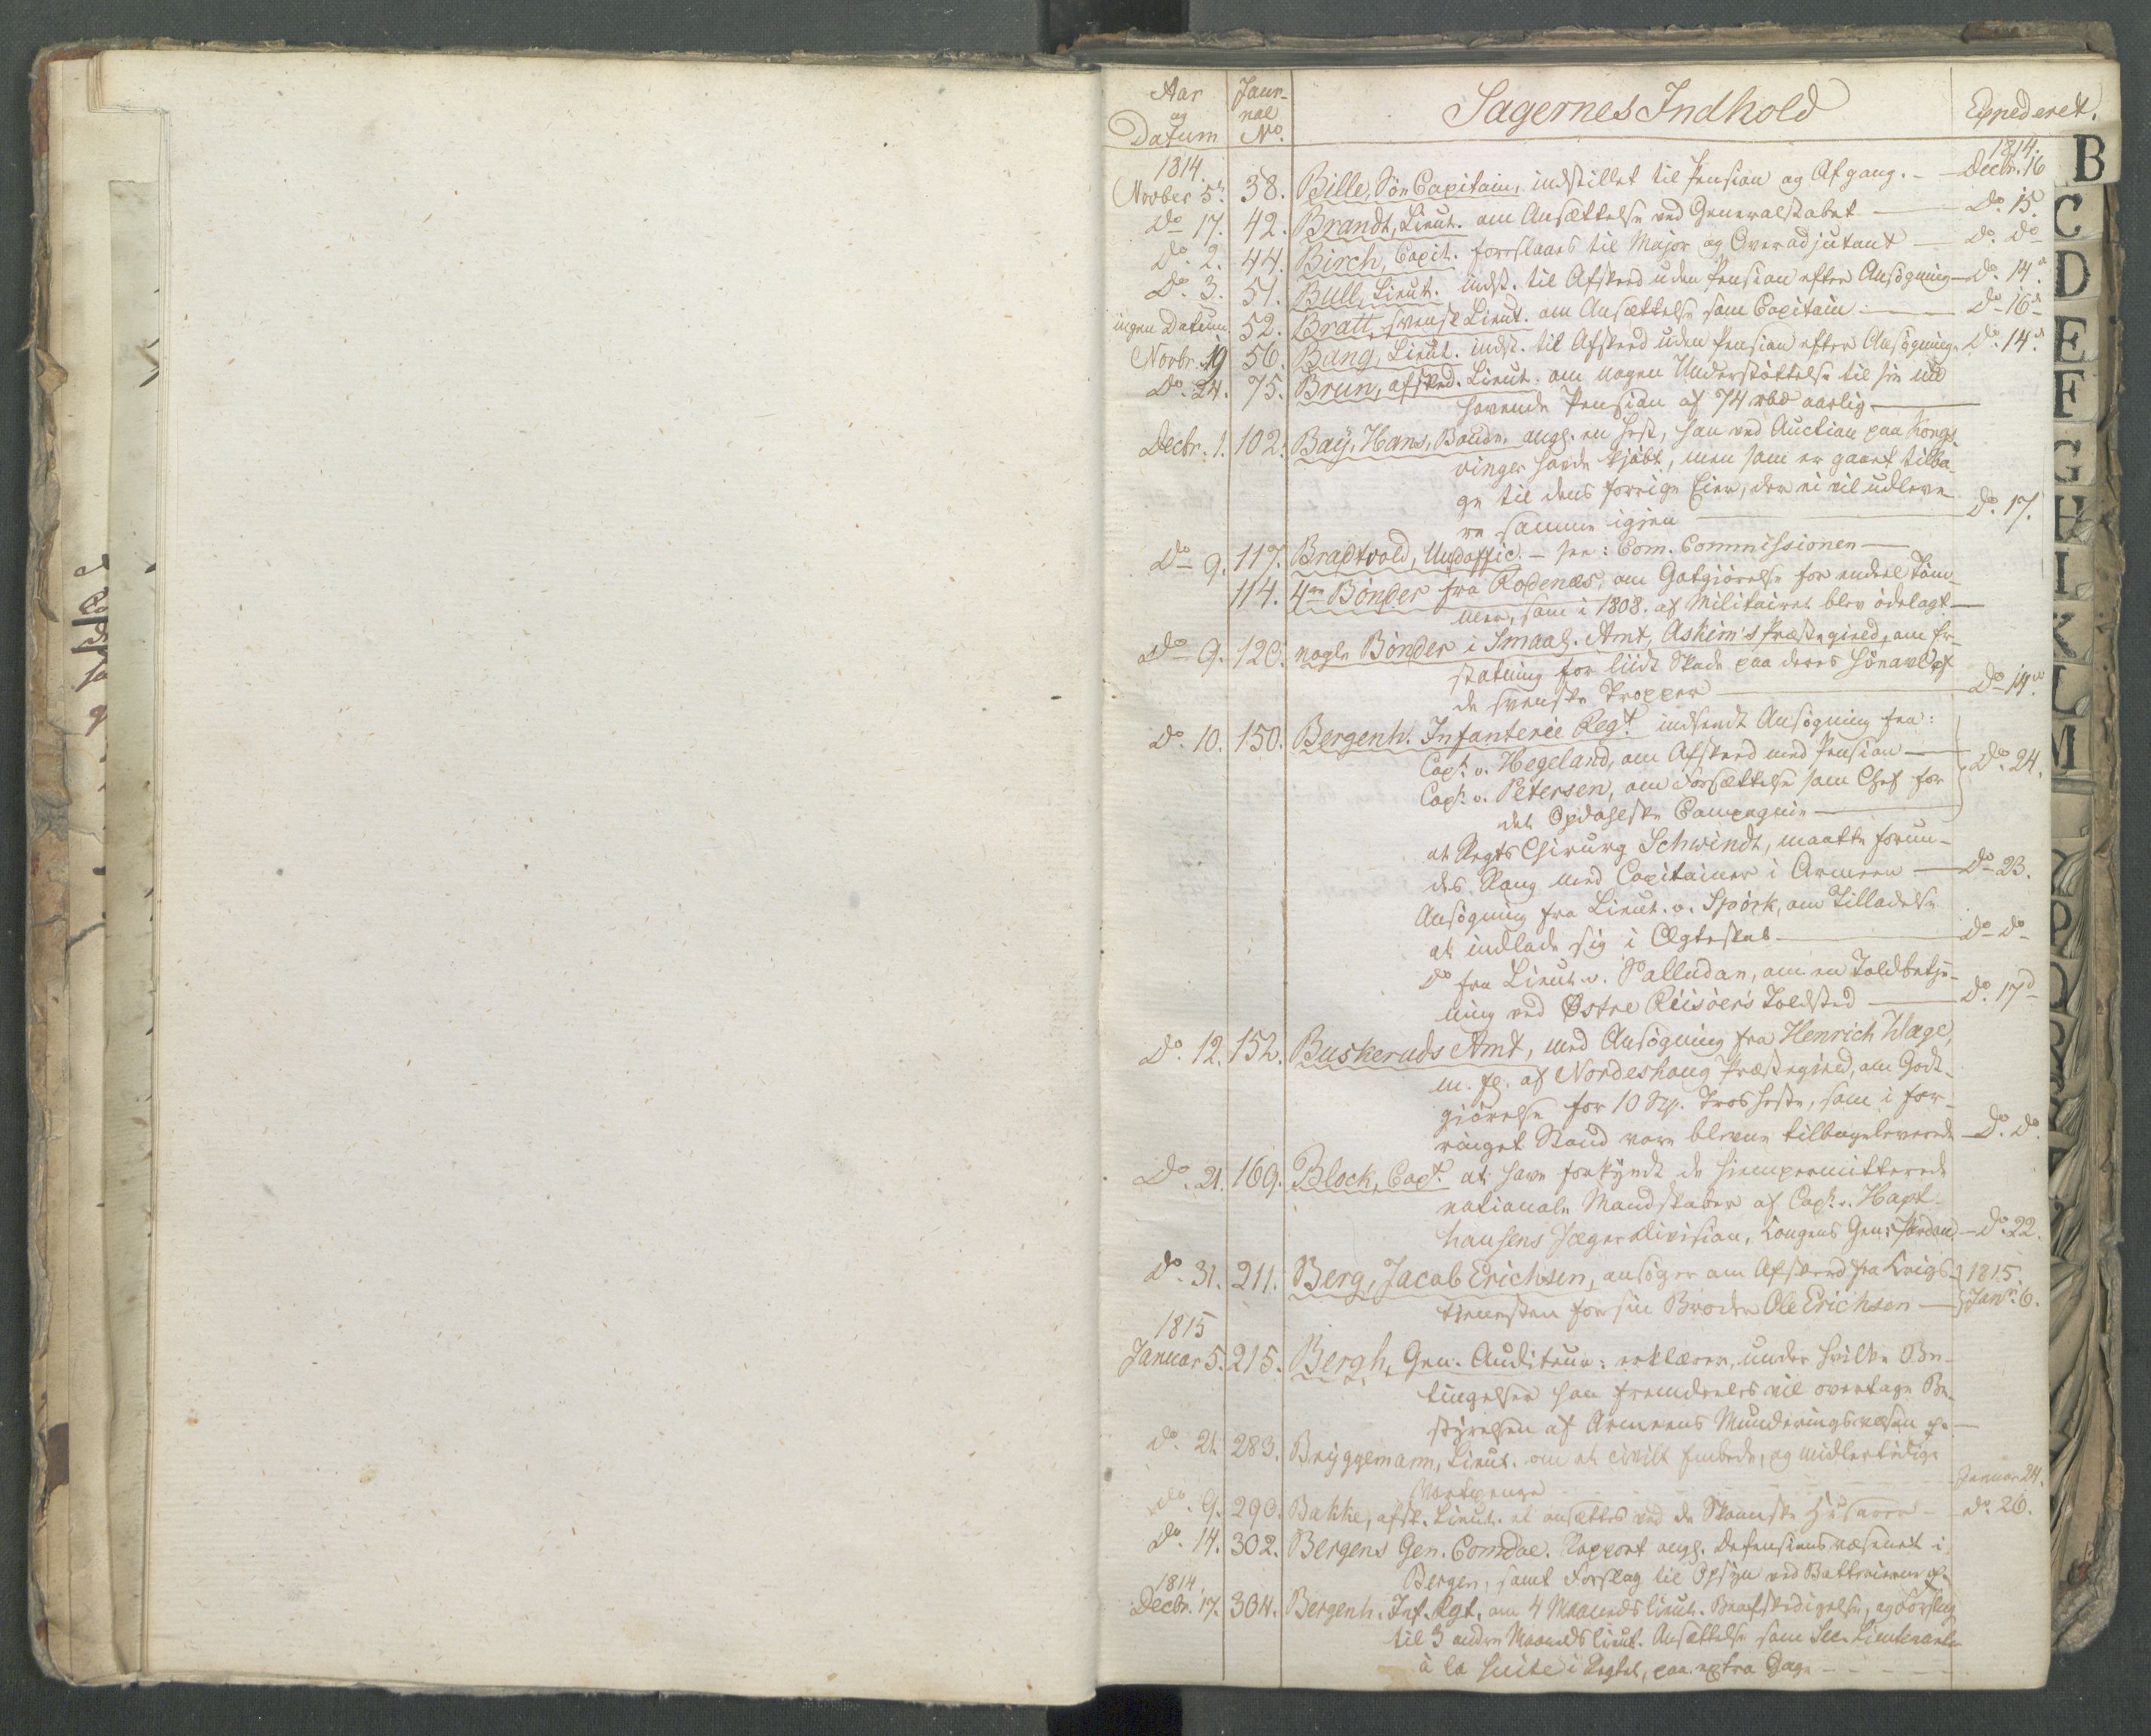 Aar og Datum
Jour-nal No.
Sagernes Indhold
Expederet.
1814.
1814.
Novber 5t. 38. Bille, Sön Capitain, indstillet til Pension og Afgang. - Decbr. 16
Do 17. 42. Brandt, Lieut. om Ansættelse ved Generalstabet - Do. 15.
Do. 2. 44. Birch, Capit. foreslaaes til Major og Overadjutant - Do. Do
Do. 3. 51. Bull, Lieut. indst. til Afskeed uden Pension efter Ansögning - Do. 14.
ingen Datum. 52. Bratt, svensk Lieut. om Ansættelse som Capitain - Do 16
Novbr. 19 56. Bang, Lieut. indst. til Afskeed uden Pension efter Ansögning. Do. 14.
Do. 24. 75. Brun, afsked. Lieut. om nogen Understöttelse til sin ind
havende Pension af 74 rbd aarlig -
Decbr. 1. 102. Baÿ, Hans, Bonde, angl. en Hest, han ved Auction paa Kongs-
vinger havde kjöbt, men som er gaaet tilba-
ge til dens forrige Eier, der ei vil udleve-
re samme igien - Do. 17.
Do 9. 117. Bradtvold, Undoffic. - see: Com. Commissionen -
114. 4re Bönder fra Rödenæs, om Godtgiörelse for endeel Töm-
mer, som i 1808. af Militairet blev ödelagt -
Do 9. 120. nogle Bönder i Smaal. Amt, Askim's Præstegield, om Er-
statning for liidt Skade paa deres af
de svenske Tropper - Do 14.
Do. 10. 150. Bergenh. Infanterie Regt. indsendt Ansögning fra:
Capt. v. Hegeland, om Afskeed med Pension -
Capt. v. Petersen, om Forsættelse som Chef for
det Opdalske Compagnie - Do. 24.
at Regts Chirurg Schwindt, maatte forun-
des Rang med Capitainer i Armeen - Do 23.
Ansögning fra Lieut. v. Spörk, om Tilladelse
at indlade sig i Ægteskab - Do Do
Do fra Lieut. v. Palludan, om en Toldbetje-
ning ved Östre Riisöer's Toldsted - Do. 17d
Do. 12. 152. Buskeruds Amt, med Ansögning fra Henrich Wage,
m. fl. af Nordeshoug Præstegield, om Godt-
giörelse for 10 Trosheste, som i for-
ringet Stand vare blevne tilbageleverede - Do. Do.
Do. 21. 169. Block, Capt. at have forkyndt de hiempermitterede
nationale Mandskaber af Capt. v. Hapt-
hausens Jægerdivision, Kongens Gen: - Do. 22.
Do. 31. 211. Berg, Jacob Erichsen, ansöger om Afskeed fra Krigs-
tienesten for sin Broder Ole Erichsen - 1815. Janr. 6.
1815
Januar 5. 215. Bergh, Gen. Auditeur: erklærer, under hvilke Be-
tingelser han fremdeeles vil overtage Be-
styrelsen af Armeens Munderingsvæsen -
Do. 21. 283. Brÿggemann, Lieut. om et civilt Embede, og midlertidige
Vartpenge - Januar 24.
Do. 9. 290. Bakke, afsk. Lieut. at ansættes ved de Skaanske Husarer - Do. 26.
Do. 14. 302. Bergens Gen. Comdoe. Rapport angl. Defensionsvæsenet i
Bergen, samt Forslag til Opsyn ved Batterierne
1814.
Decbr. 17. 304. Bergenh. Inf. Rgt, om 4 Maanedslieut. Beafskedigelse, og Forslag
til 3 andre Maanedslieut. Ansættelse som Sec. Lieutenanter
à la suite i Regtet, paa extra Gage -
B
C
D
E
F
G
H
I
K
L
M
P
Q
R